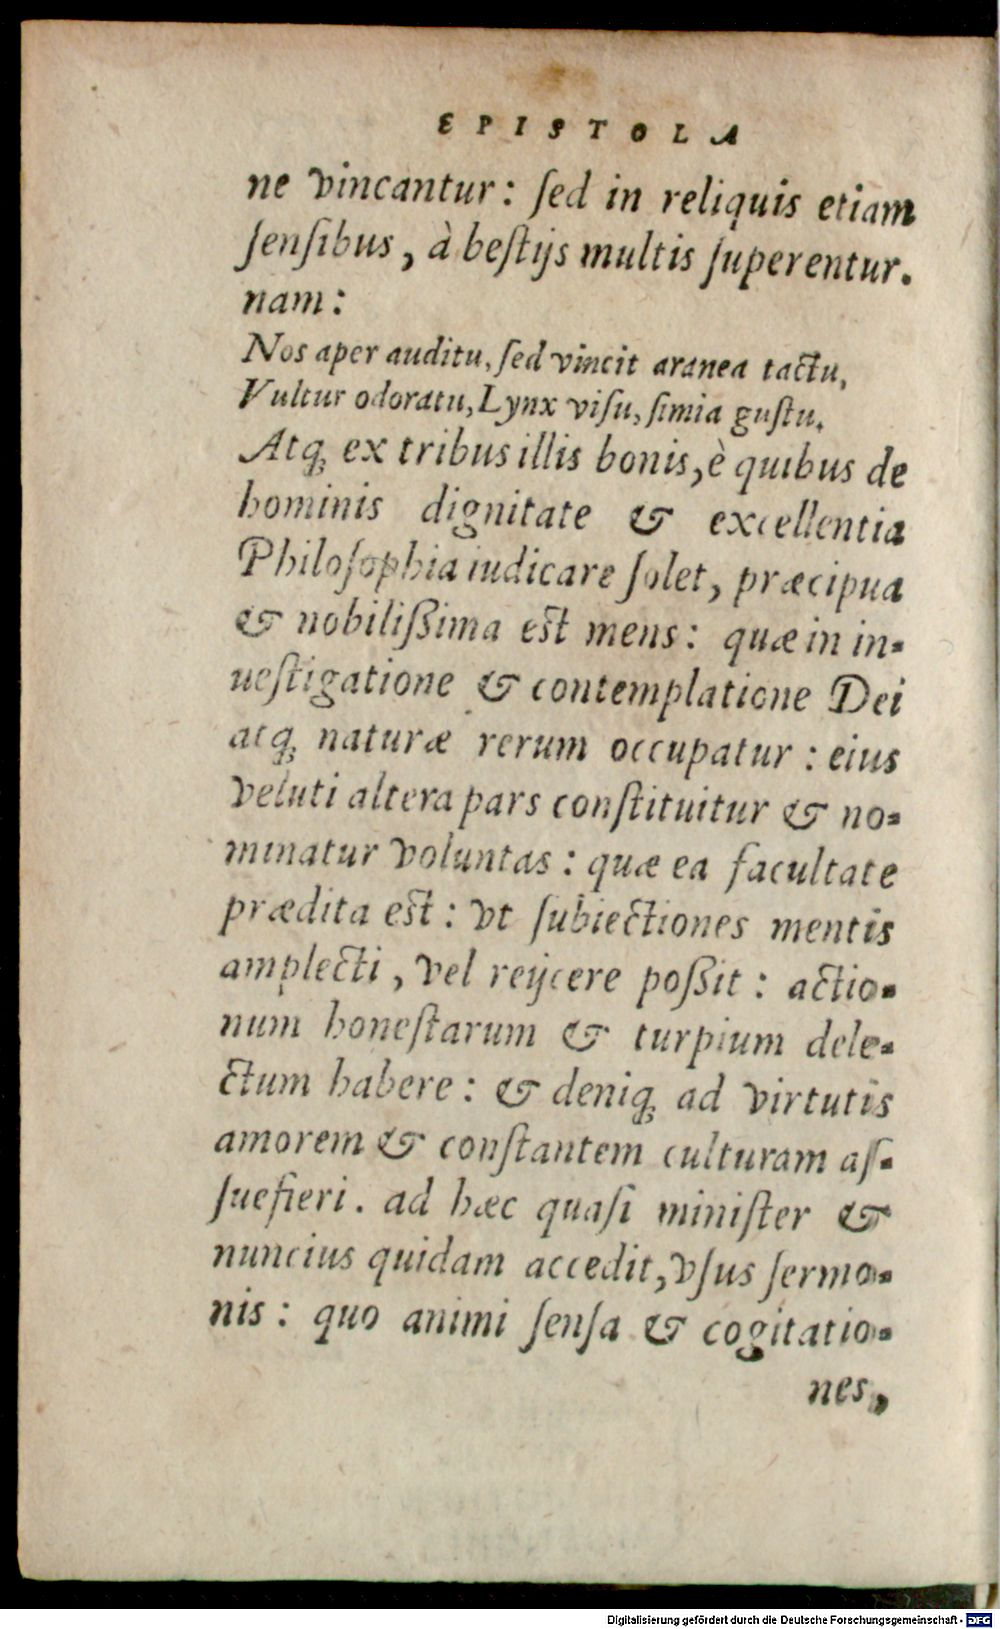 EPISTOLA
ne vincantur: ſed in reliquis etiam
ſenſibus, à beſtijs multis ſuperentur.
nam:
Nos aper auditu, ſed vincit aranea tactu,
Vultur odoratu, Lynx viſu, ſimia guſtu.
Atq; ex tribus illis bonis, è quibus de
hominis dignitate & excellentia
Philoſophia iudicare ſolet, præcipua
& nobilißima est mens: quæ in in-
ueſtigatione & contemplatione Dei
atq; naturæ rerum occupatur: eius
veluti altera pars conſtituitur & no-
minatur voluntas: quæ ea facultate
prædita est: vt ſubiectiones mentis
amplecti, vel reijcere poßit: actio-
num honeſtarum & turpium dele-
ctum habere: & deniq; ad virtutis
amorem & conſtantem culturam aſ-
ſuefieri. ad hæc quaſi miniſter &
nuncius quidam accedit, vſus ſermo-
nis: quo animi ſenſa & cogitatio-
nes,
Digitalisierung gefördert durch die Deutsche Forschungsgemeinschaft - DFG